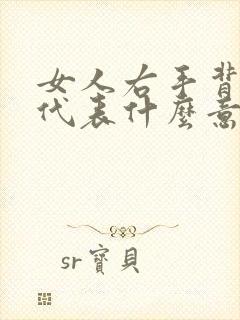 女人右手背
代表什麼意
sr寶貝